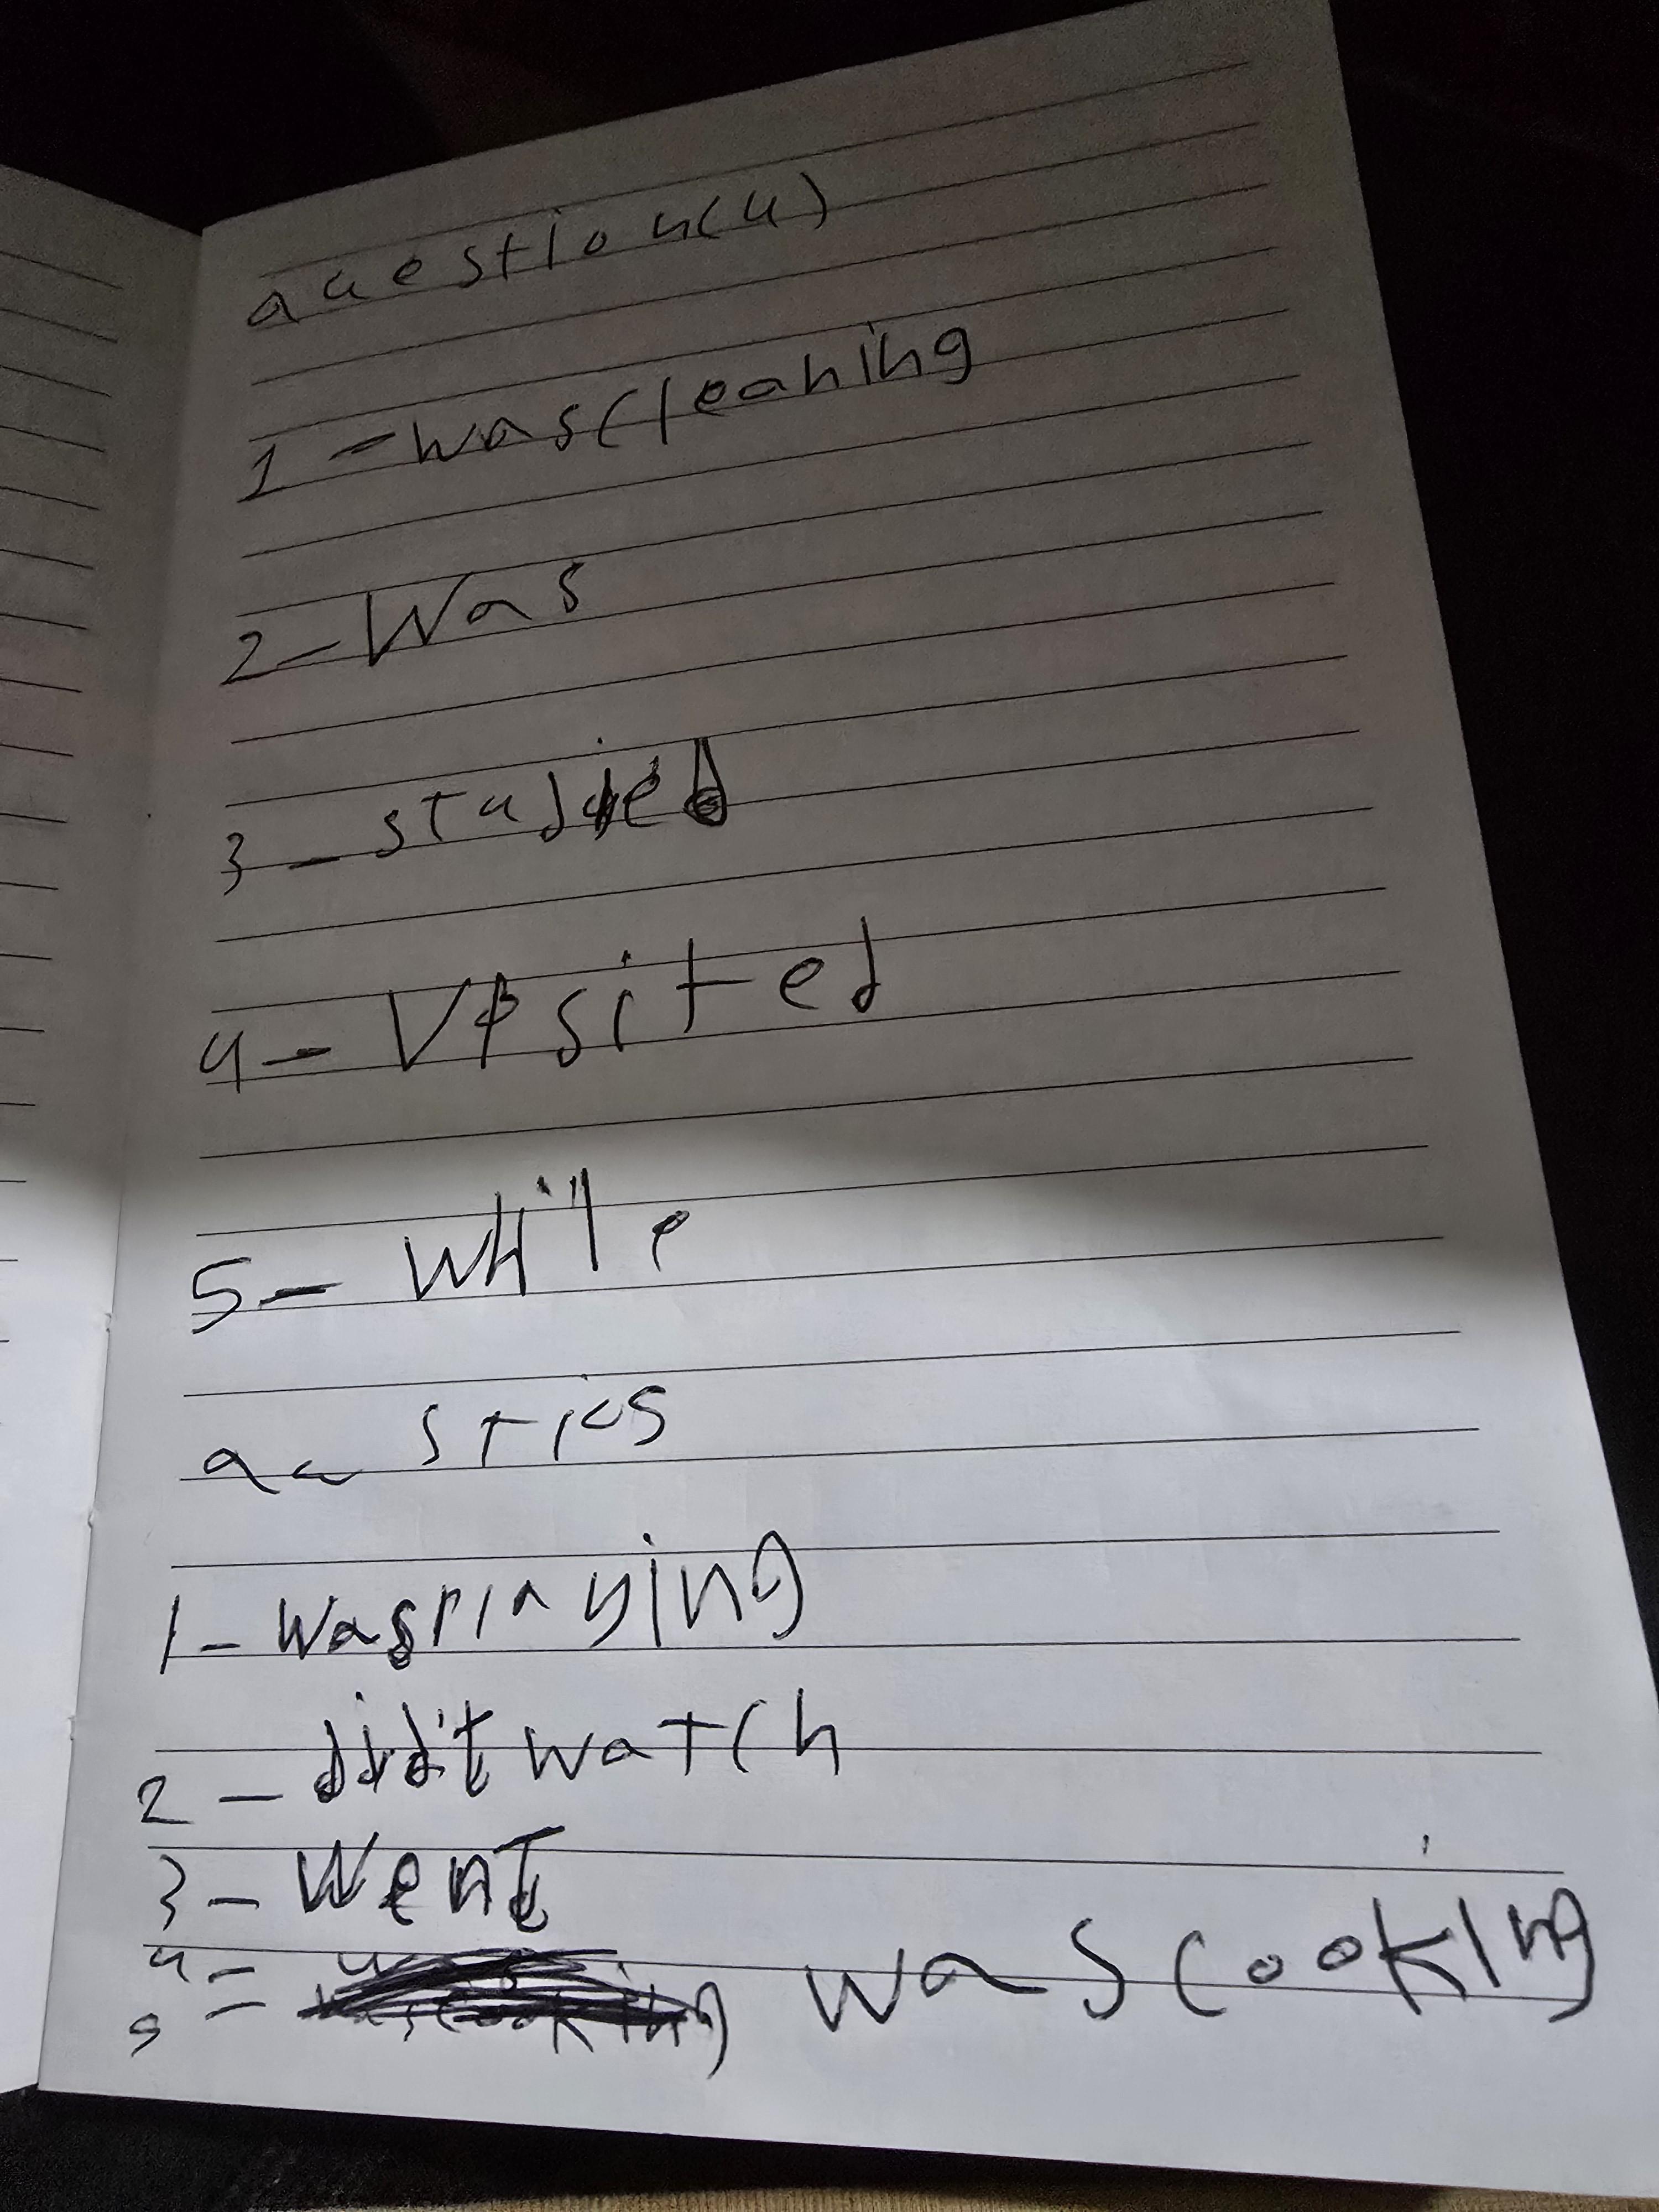 question(4)
1 - was cleaning
2 - Was
3 - studied
4 - Visited
5 - while
1 - was playing
2 - did't watch
3 - Went
4 - was cooking
5 -